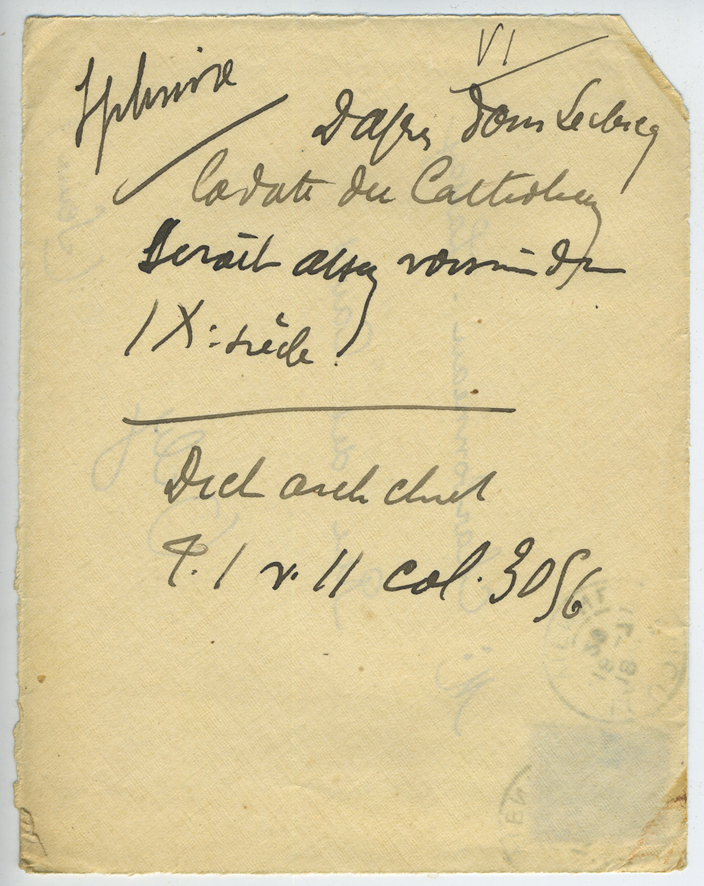 VI
D'après Dom Leclercq
la date du Catholicon
Serait assez voisin du
IX: siècle.
Dict arch chret
T. I v. II col. 3056